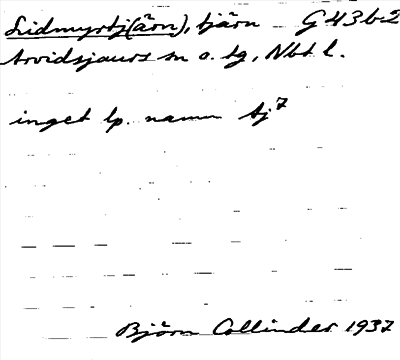 Lidmyrtj(ärn), tjärn G 43 b:2
Arvidsjaurs sn o. tg, Nbt l.
inget lp. namn tj⁷
Björn Collinder 1937